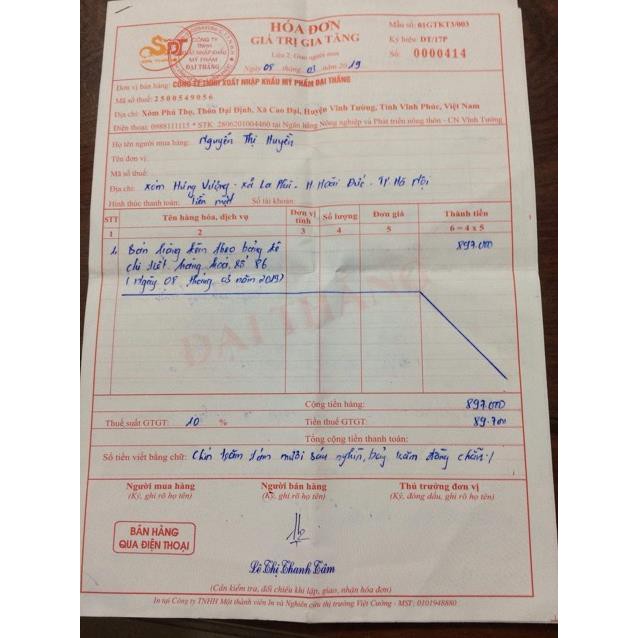 HÓA ĐƠN
GIÁ TRỊ GIA TĂNG
Liên 2: Giao người mua
Ngày 08 tháng 03 năm 2019
Mẫu số: 01GTKT3/003
Ký hiệu: ĐT/17P
Số: 0000414
SĐT
CÔNG TY
TNHH
XUẤT NHẬP KHẨU
MỸ PHẨM
ĐẠI THẮNG
Đơn vị bán hàng: CÔNG TY TNHH XUẤT NHẬP KHẨU MỸ PHẨM ĐẠI THẮNG
Mã số thuế: 2500549056
Địa chỉ: Xóm Phú Thọ, Thôn Đại Định, Xã Cao Đại, Huyện Vĩnh Tường, Tỉnh Vĩnh Phúc, Việt Nam
Điện thoại: 0988111115 * STK: 2806201004460 tại Ngân hàng Nông nghiệp và Phát triển nông thôn - CN Vĩnh Tường
Họ tên người mua hàng: Nguyễn Thị Huyền
Tên đơn vị:
Mã số thuế:
Địa chỉ: xóm Hùng Vương - xã La Phù - H Hoài Đức - TP Hà Nội
Hình thức thanh toán: Tiền mặt Số tài khoản:
STT Tên hàng hóa, dịch vụ Đơn vị tính Số lượng Đơn giá Thành tiền
1 2 3 4 5 6 = 4 x 5
1. Bán hàng kèm theo bảng kê 897.000
chi tiết hàng hoá số 86
(Ngày 08 tháng 03 năm 2019)
ĐẠI THẮNG
Cộng tiền hàng: 897.000
Thuế suất GTGT: 10 % Tiền thuế GTGT: 89.700
Tổng cộng tiền thanh toán:
Số tiền viết bằng chữ: Chín trăm tám mươi sáu nghìn, bảy trăm đồng chẵn./
Người mua hàng Người bán hàng Thủ trưởng đơn vị
(Ký, ghi rõ họ tên) (Ký, ghi rõ họ tên) (Ký, đóng dấu, ghi rõ họ tên)
BÁN HÀNG
QUA ĐIỆN THOẠI
Lê Thị Thanh Tâm
(Cần kiểm tra, đối chiếu khi lập, giao, nhận hóa đơn)
In tại Công ty TNHH Một thành viên In và Nghiên cứu thị trường Việt Cường - MST: 0101948880